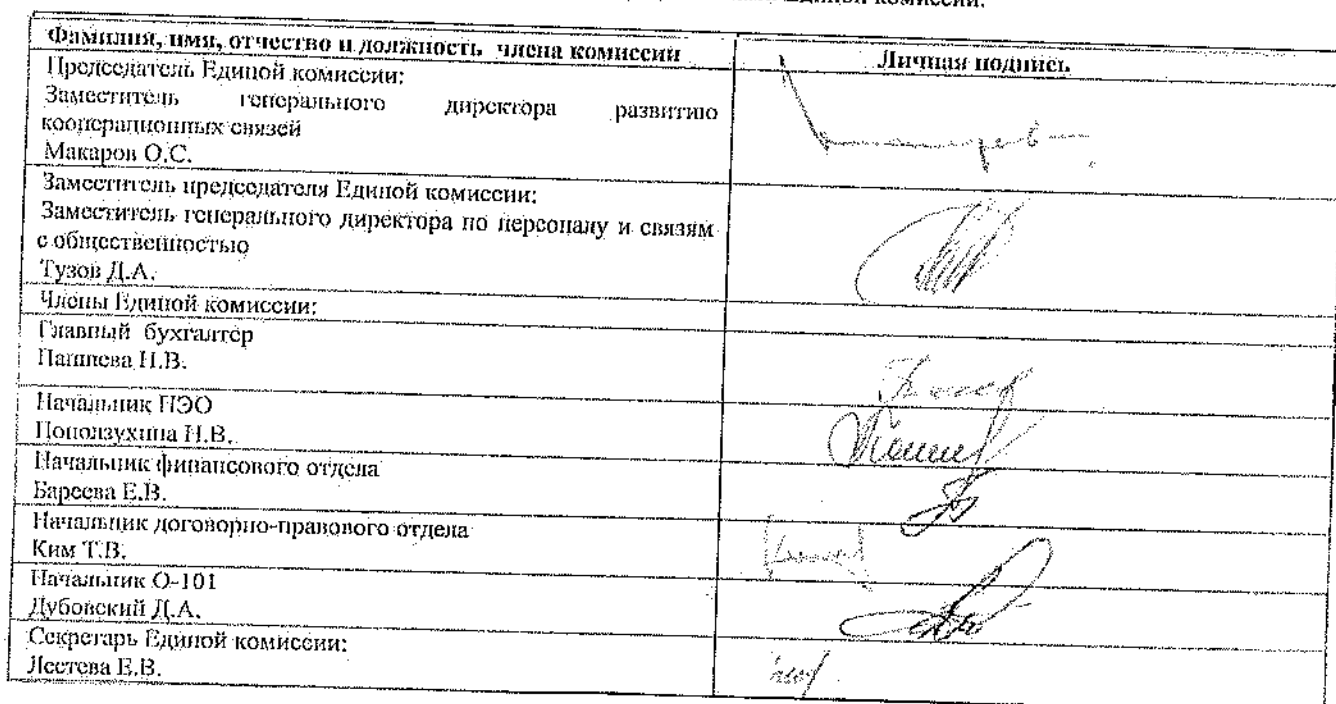 Единой комиссии.
Фамилия, имя, отчество и должность члена комиссии
Личная подпись
Председатель Единой комиссии:
Заместитель генерального директора развитию
кооперационных связей
Макаров О.С.
Заместитель председателя Единой комиссии:
Заместитель генерального директора по персоналу и связям
с общественностью
Тузов Д.А.
Члены Единой комиссии:
Главный бухгалтер
Н.В.
Начальник ПЭО
Поползухина Н.В.
Начальник финансового отдела
Бареева Е.В.
Начальник договорно-правового отдела
Ким Т.В.
Начальник О-101
Дубовский Д.А.
Секретарь Единой комиссии:
Лестева Е.В.